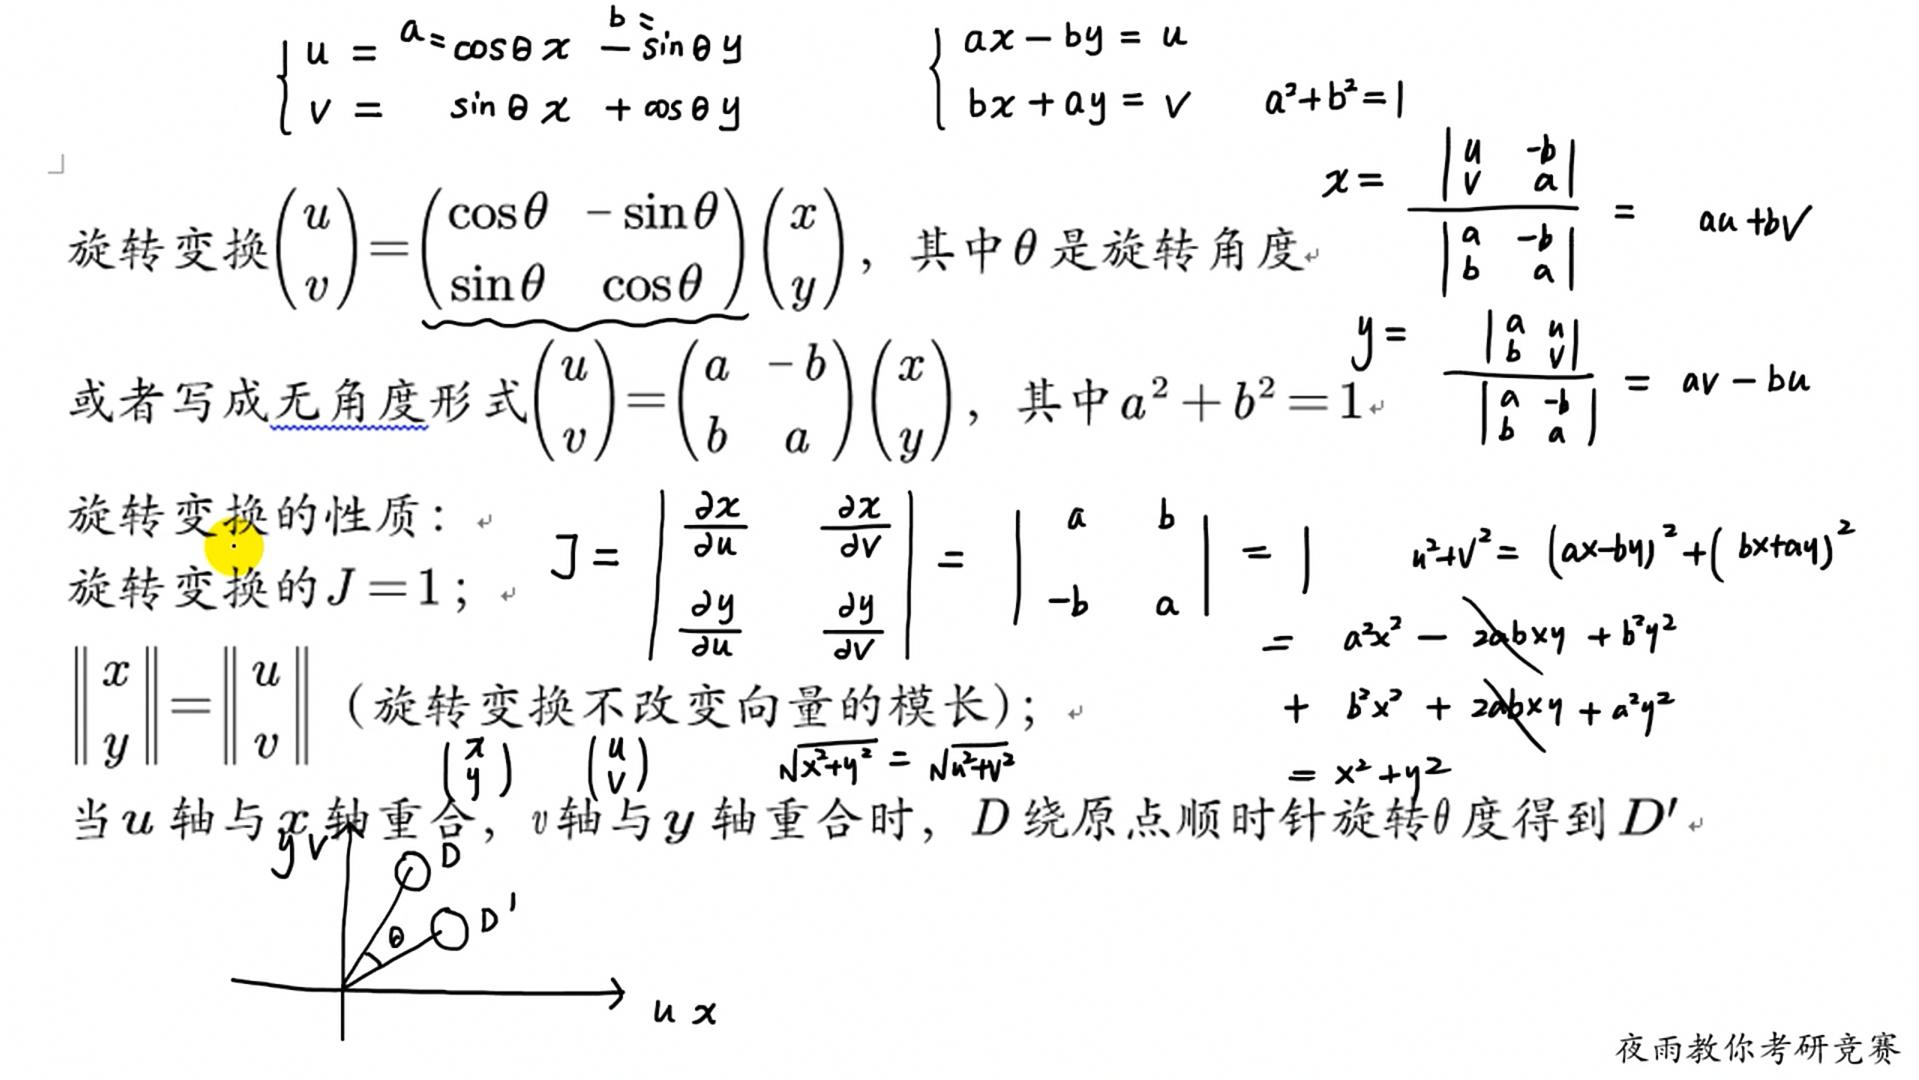 u = a= cosθ x b= − sinθ y
v = sinθ x + cosθ y
ax − by = u
bx + ay = v a²+b²=1
旋转变换(u v)=(cosθ −sinθ sinθ cosθ)(x y)，其中θ是旋转角度
x = |u -b v a| / |a -b b a| = au+bv
或者写成无角度形式(u v)=(a −b b a)(x y)，其中a²+b²=1
y = |a u b v| / |a -b b a| = av − bu
旋转变换的性质：
旋转变换的J=1；
J = |∂x/∂u ∂x/∂v ∂y/∂u ∂y/∂v| = |a b -b a| = 1
u²+v² = (ax-by)²+(bx+ay)²
= a²x² − 2abxy + b²y²
+ b²x² + 2abxy + a²y²
= x²+y²
‖x y‖=‖u v‖（旋转变换不改变向量的模长)；
(x y) (u v) √x²+y² = √u²+v²
当u轴与x轴重合，v轴与y轴重合时，D绕原点顺时针旋转θ度得到D′
y v D
θ D'
u x
夜雨教你考研竞赛